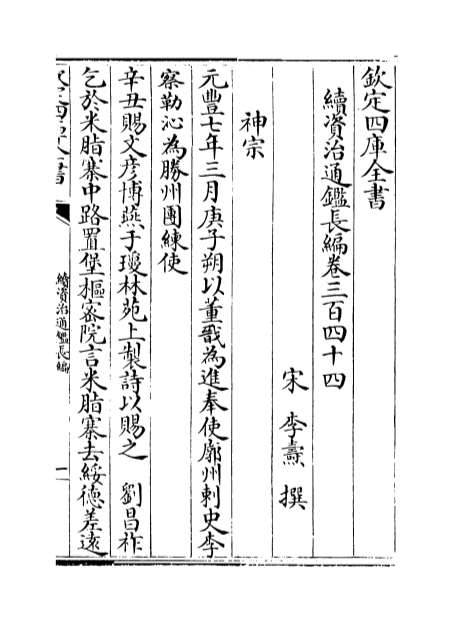 欽定四庫全書
續資治通鑑長編卷三百四十四
宋 李燾 撰
神宗
元豐七年三月庚子朔以董戬為進奉使廓州刺史李
察勒沁為勝州團練使
辛丑賜文彦博燕于瓊林苑上製詩以賜之 劉昌祚
乞於米脂寨中路置堡樞密院言米脂寨去綏德差遠
續資治通鑑長編
一